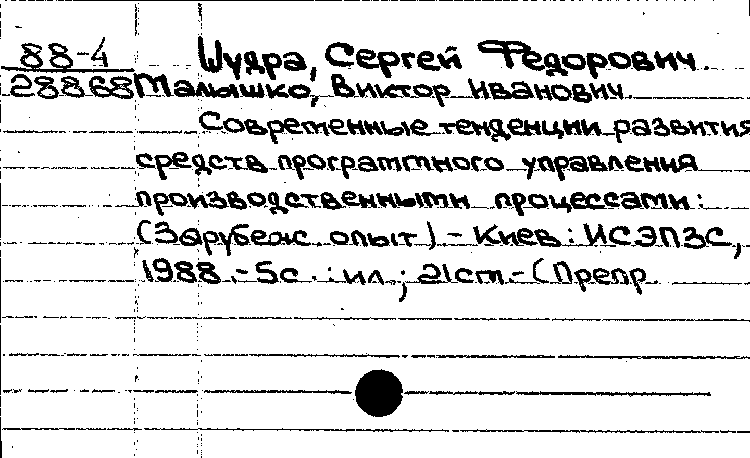 88-4 Шудра, Сергей Федорович.
28868 Малышко, Виктор Иванович.
Современные тенденции развития
средств программного управления
производственными процессами:
(Зарубеж. опыт) - Киев: ИСЭПЗС,
1988.- 5с.: ил.; 21см.- (Препр.